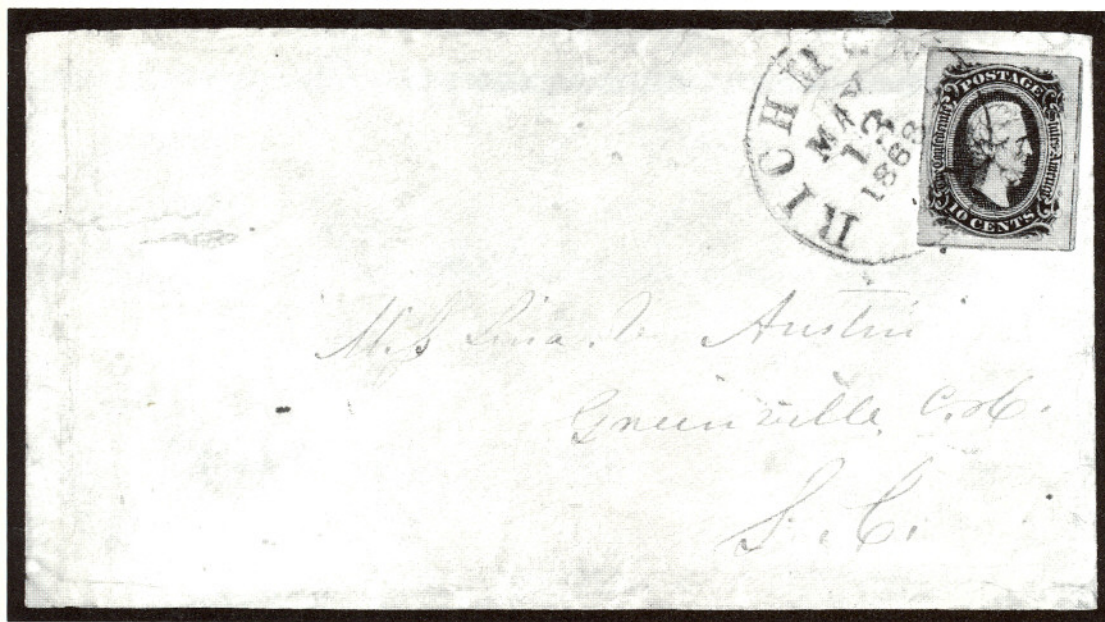 RICHM
MAY
13
1863
POSTAGE
The Confederate States of America
10 CENTS
Austin
Greenville C.H.
S.C.